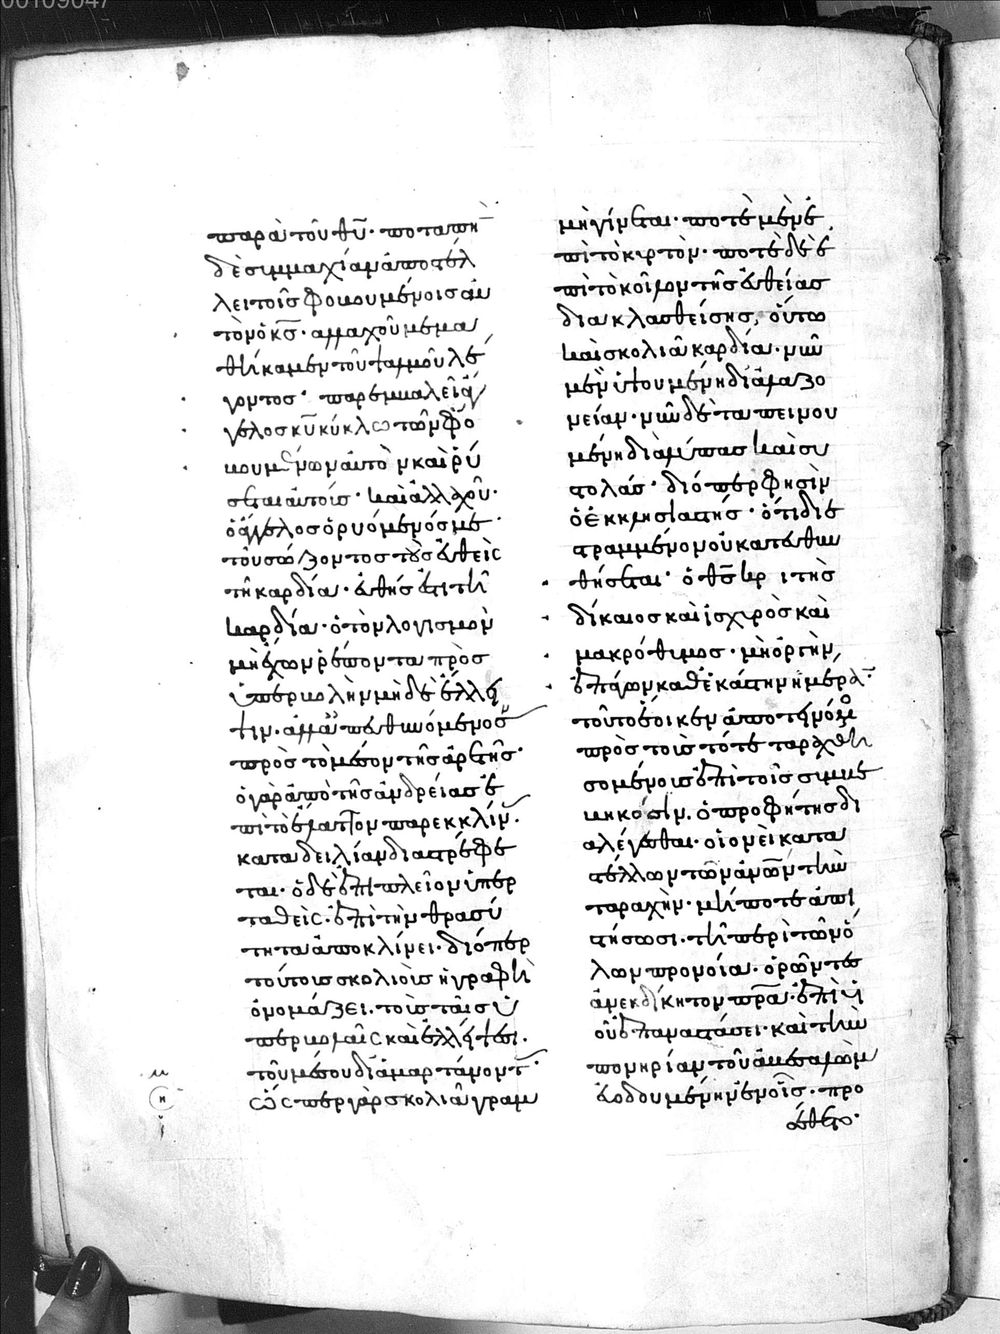 παρὰ τοῦ θῦ· ποταπὴ
δὲ συμμαχίαν ἀποτέλ
λει τοῖς φοβουμένοις αὐ
τὸν ὁ κς· ἀλλαχοῦ μεμα
θήκαμεν τοῦ ψαλμοῦ λέ
γοντος· παρεμβαλεῖ ἄγ
γελος κυ κύκλω τῶν φο
βουμένων αὐτὸν καὶ ῥύ
σεται αὐτούς· καὶ ἀλλαχοῦ·
ὁ ἄγγελος ὁ ῥυόμενός με·
τοῦ σώζοντος τοὺς εὐθεῖς
τῆ καρδία· εὐθής ἐστι τῆ
καρδία· ὁ τὸν λογισμὸν
μὴ ἔχων ῥέποντα πρὸς
ὑπερβολὴν μηδὲ ἔλλει
ψιν· ἀλλ' ἀπευθυνόμενος
πρὸς τὸ μέσον τῆς ἀρετῆς·
ὁ γὰρ ἀπὸ τῆς ἀνδρείας ἐ
πὶ τὸ ἔλαττον παρεκκλίν·
κατὰ δειλίαν διαστρέφε
ται· ὁ δὲ ἐπὶ πλεῖον ὑπερ
ταθεὶς· ἐπὶ τὴν θρασύ
τητα ἀποκλίνει· διόπερ
τούτους σκολιοὺς ἡ γραφὴ
ὀνομάζει· τοὺς ταῖς ὑ
περβολαῖς καὶ ἐλλείψεσι·
τοῦ μέσου διαμαρτάνοντ·
ὥσπερ γὰρ σκολιὰ γραμ
μὴ γίνεται· ποτὲ μὲν ἐ
πὶ τὸ κυρτὸν· ποτὲ δὲ ἐ
πὶ τὸ κοῖλον τῆς εὐθείας
διακλασθείσης, οὕτω
καὶ σκολιὰ καρδία· νῦν
μὲν ὑψουμένη δι' ἀλαζο
νείαν· νῦν δὲ ταπεινου
μένη διὰ λύπας καὶ συ
στολάς· διόπερ φησὶν
ὁ ἐκκλησιαστής· ὅτι διε
στραμμένον οὐ κατευθυν
θήσεται· ὁ θς κριτὴς
δίκαιος καὶ ἰσχυρὸς καὶ
μακρόθυμος· μὴ ὀργὴν
ἐπάγων καθ' ἑκάστην ἡμέραν·
τοῦτο ἔοικεν ἀποτεινόμενος
πρὸς τοὺς τότε ταραχθη
σομένους ἐπὶ τοῖς συμβε
βηκόσιν· ὁ προφήτης δι
αλέγεσθαι· οἱονεὶ κατα
στέλλων τῶν ἀνων τὴν
ταραχὴν· μή ποτε ἀπι
στήσωσι· τῆ περὶ τῶν ὅ
λων προνοία· ὁρῶντες
ἀνεκδίκητον πρα· ἐπὶ υἱ
οῦ ἐπαναστάσει· καὶ τὴν
πονηρίαν τοῦ ἀβεσαλὼμ
εὐοδουμένην ἐν οἷς· προ
έθετο·